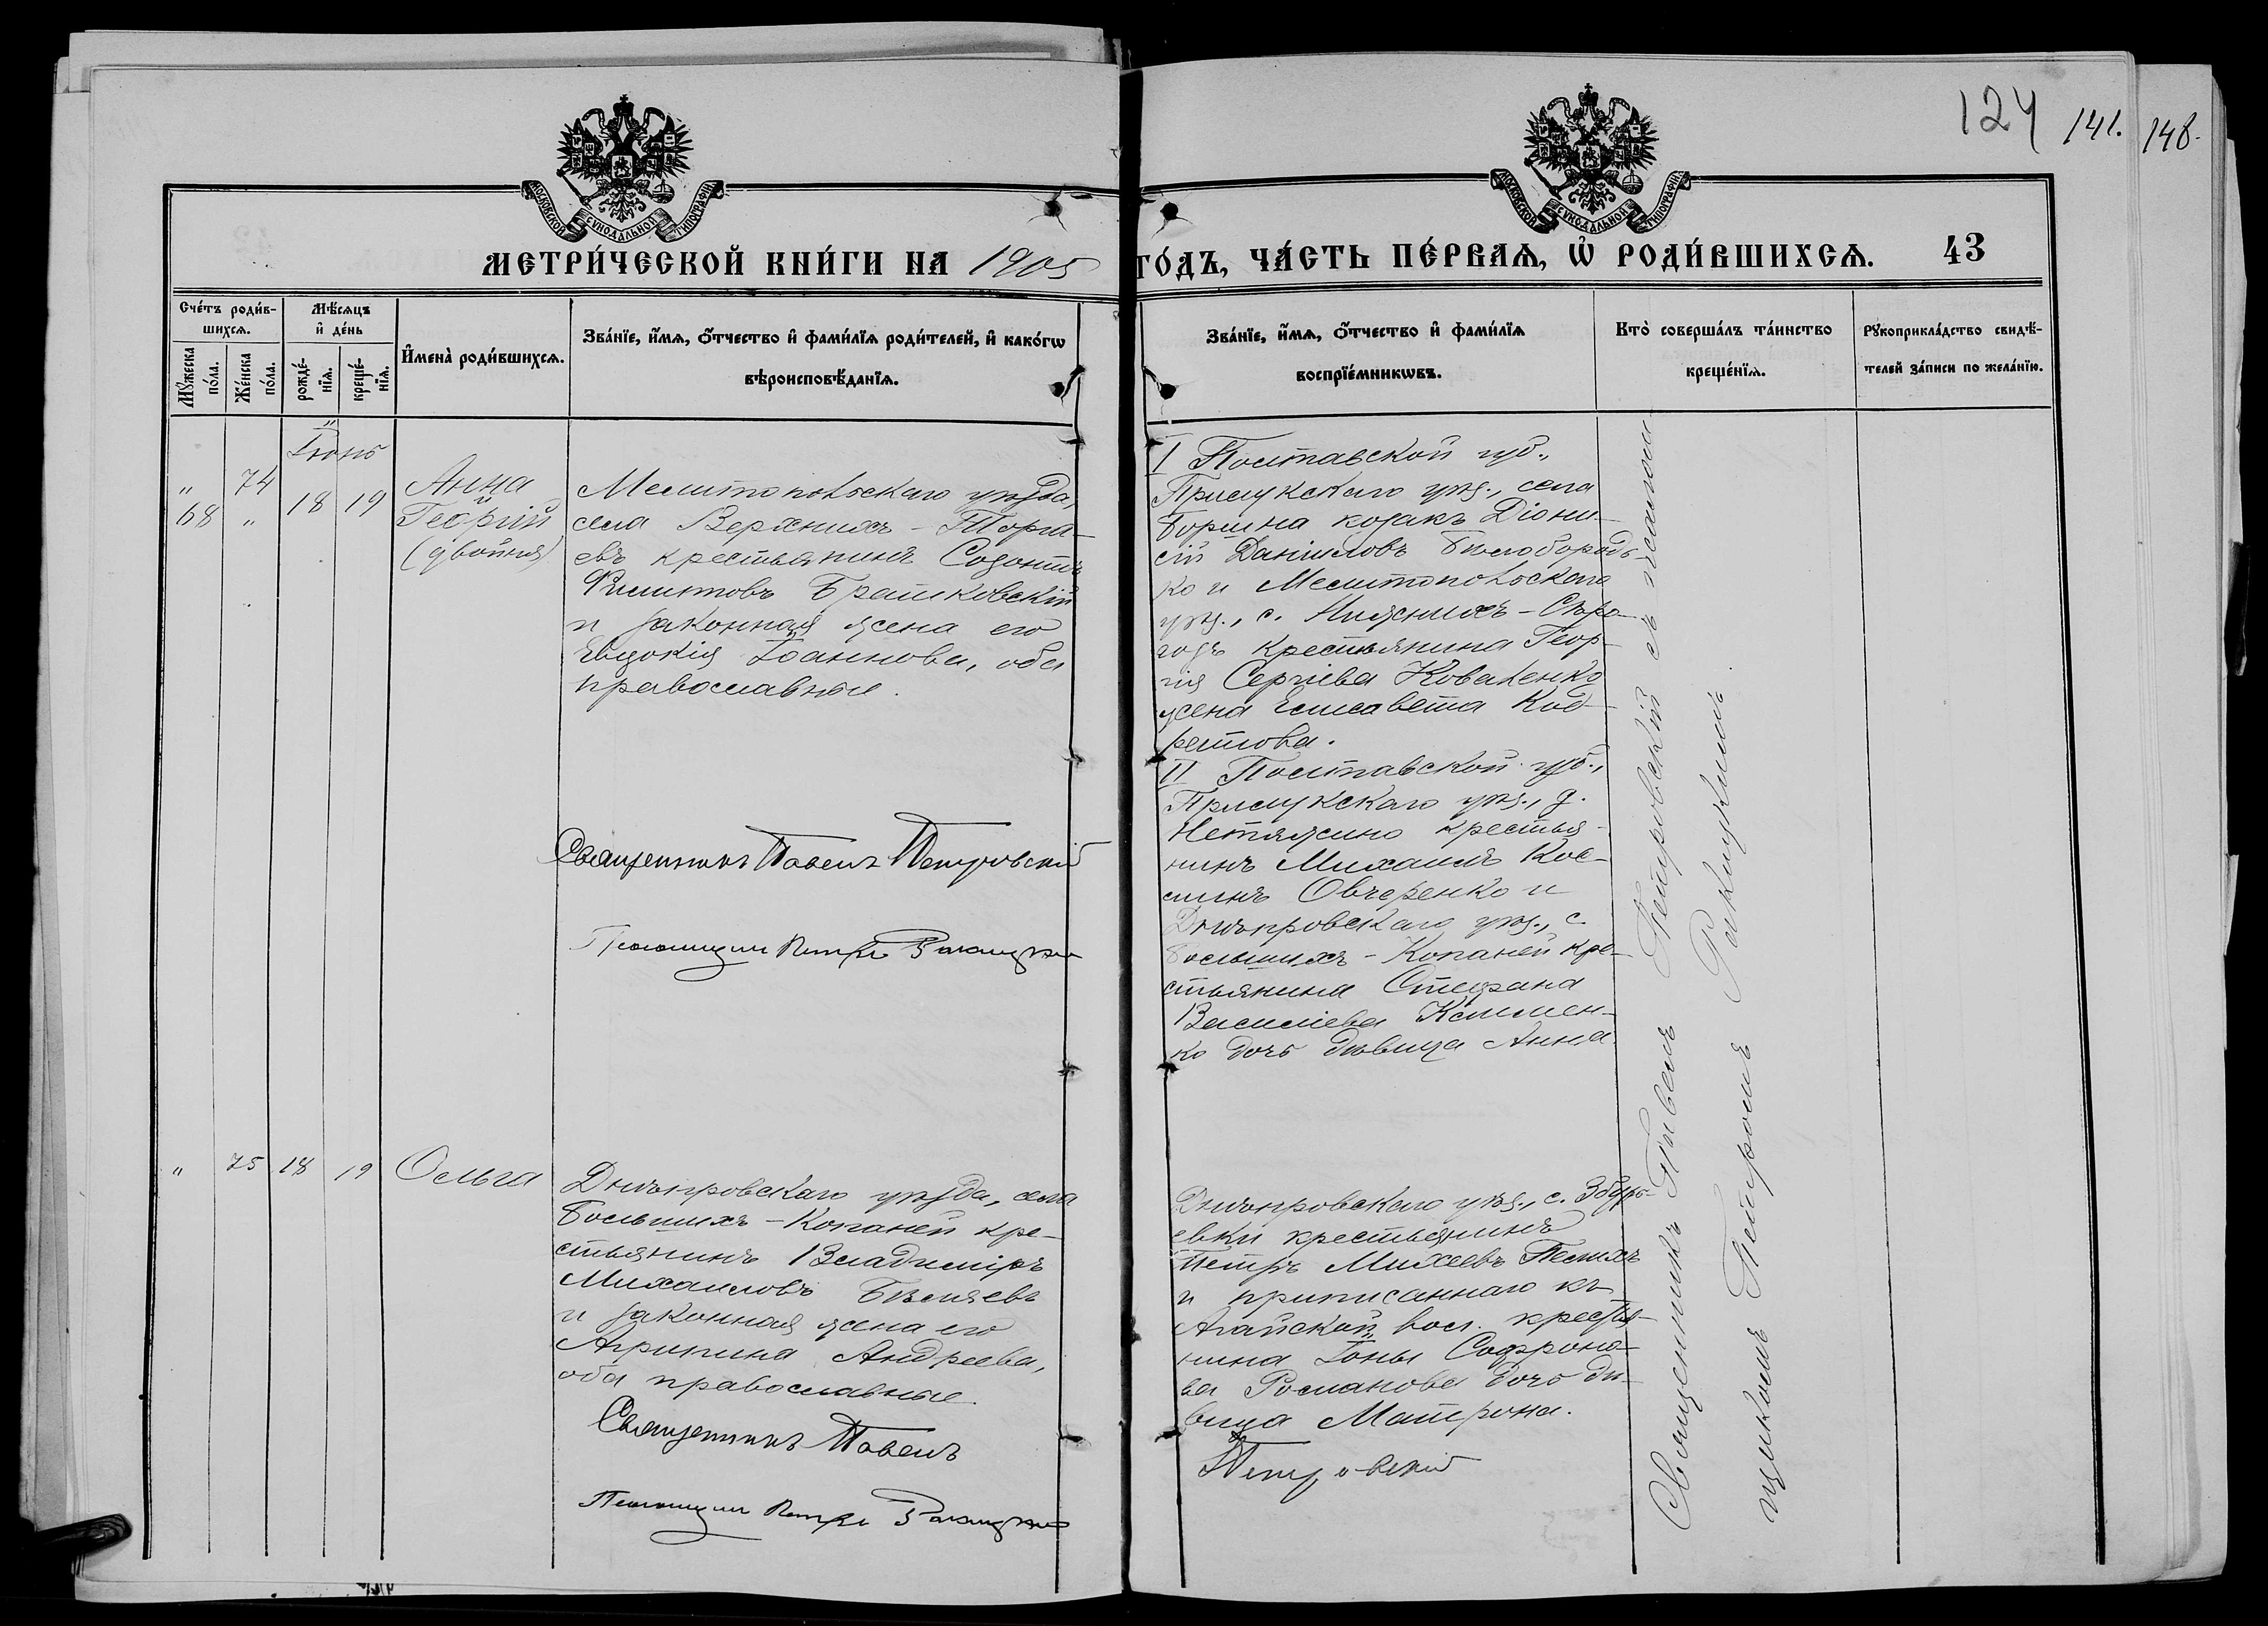 124 141. 148.
МОСКОВСКОЙ СѴНОДАЛЬНОЙ ТИПОГРАФІИ
МОСКОВСКОЙ СѴНОДАЛЬНОЙ ТИПОГРАФІИ
МЕТРИ́ЧЕСКОЙ КНИ́ГИ НА 1905
ГО́ДЪ, ЧА́СТЬ ПЕ́РВАѦ, Ѡ҆ РОДИ́ВШИХСѦ. 43
Сче́тъ роди́в-
шихсѧ.
Мꙋ́жеска
по́ла.
Же́нска
по́ла.
Мѣ́сѧцъ
и҆ де́нь
рожде́-
нїѧ.
креще́-
нїѧ.
И҆мена̀ роди́вшихсѧ.
Зва́нїе, и҆́мѧ, ѻ҆́тчество и҆ фами́лїѧ роди́телей, и҆ како́гѡ
вѣроисповѣ́данїѧ.
Зва́нїе, и҆́мѧ, ѻ҆́тчество и҆ фами́лїѧ
воспрїе́мникѡвъ.
Кто̀ соверша́лъ та́инство
креще́нїѧ.
Рꙋкоприкла́дство свидѣ́-
телей за́писи по жела́нїю.
Іюнь
" 74
68 "
18 19
Анна
и
Георгій
(двойня)
Мелитопольскаго уѣзда,
села Верхнихъ-Торга-
евъ крестьянинъ Созонтъ
Филиповъ Братковскій
и законная жена его
Евдокія Іоаннова, оба
православные.
Священникъ Павелъ Петровскій
Псаломщикъ Петръ Ракицкій
I Полтавской губ.,
Прилукскаго уѣз., села
Боршна козакъ Діони-
сій Даніиловъ Бѣлобородь-
ко и Мелитопольскаго
уѣз., с. Нижнихъ-Сѣро-
гозъ крестьянина Геор-
гія Сергіева Коваленко
жена Елисавета Код-
ратова.
II Полтавской губ.,
Прилукскаго уѣз., д.
Нетяжино крестья-
нинъ Михаилъ Кос-
минъ Овчеренко и
Днѣпровскаго уѣз., с.
Большихъ-Копаней кре-
стьянина Стефана
Василіева Клімен-
ко дочь дѣвица Анна.
" 75 18 19 Ольга
Днѣпровскаго уѣзда, села
Большихъ-Копаней кре-
стьянинъ Владиміръ
Михаиловъ Бѣляевъ
и законная жена его
Агрипина Андреева,
оба православные.
Священникъ Павелъ
Псаломщикъ Петръ Ракицкій
Днѣпровскаго уѣз., с. Збурь-
евки крестьянинъ
Петръ Михеевъ
и приписаннаго къ
Агайской вол. крестья-
нина Іоны Софроно-
ва Романова дочь дѣ-
вица Матрона.
Петровскій
Священникъ Павелъ Петровскій съ псалом-
щикомъ Петромъ Ракицкимъ.